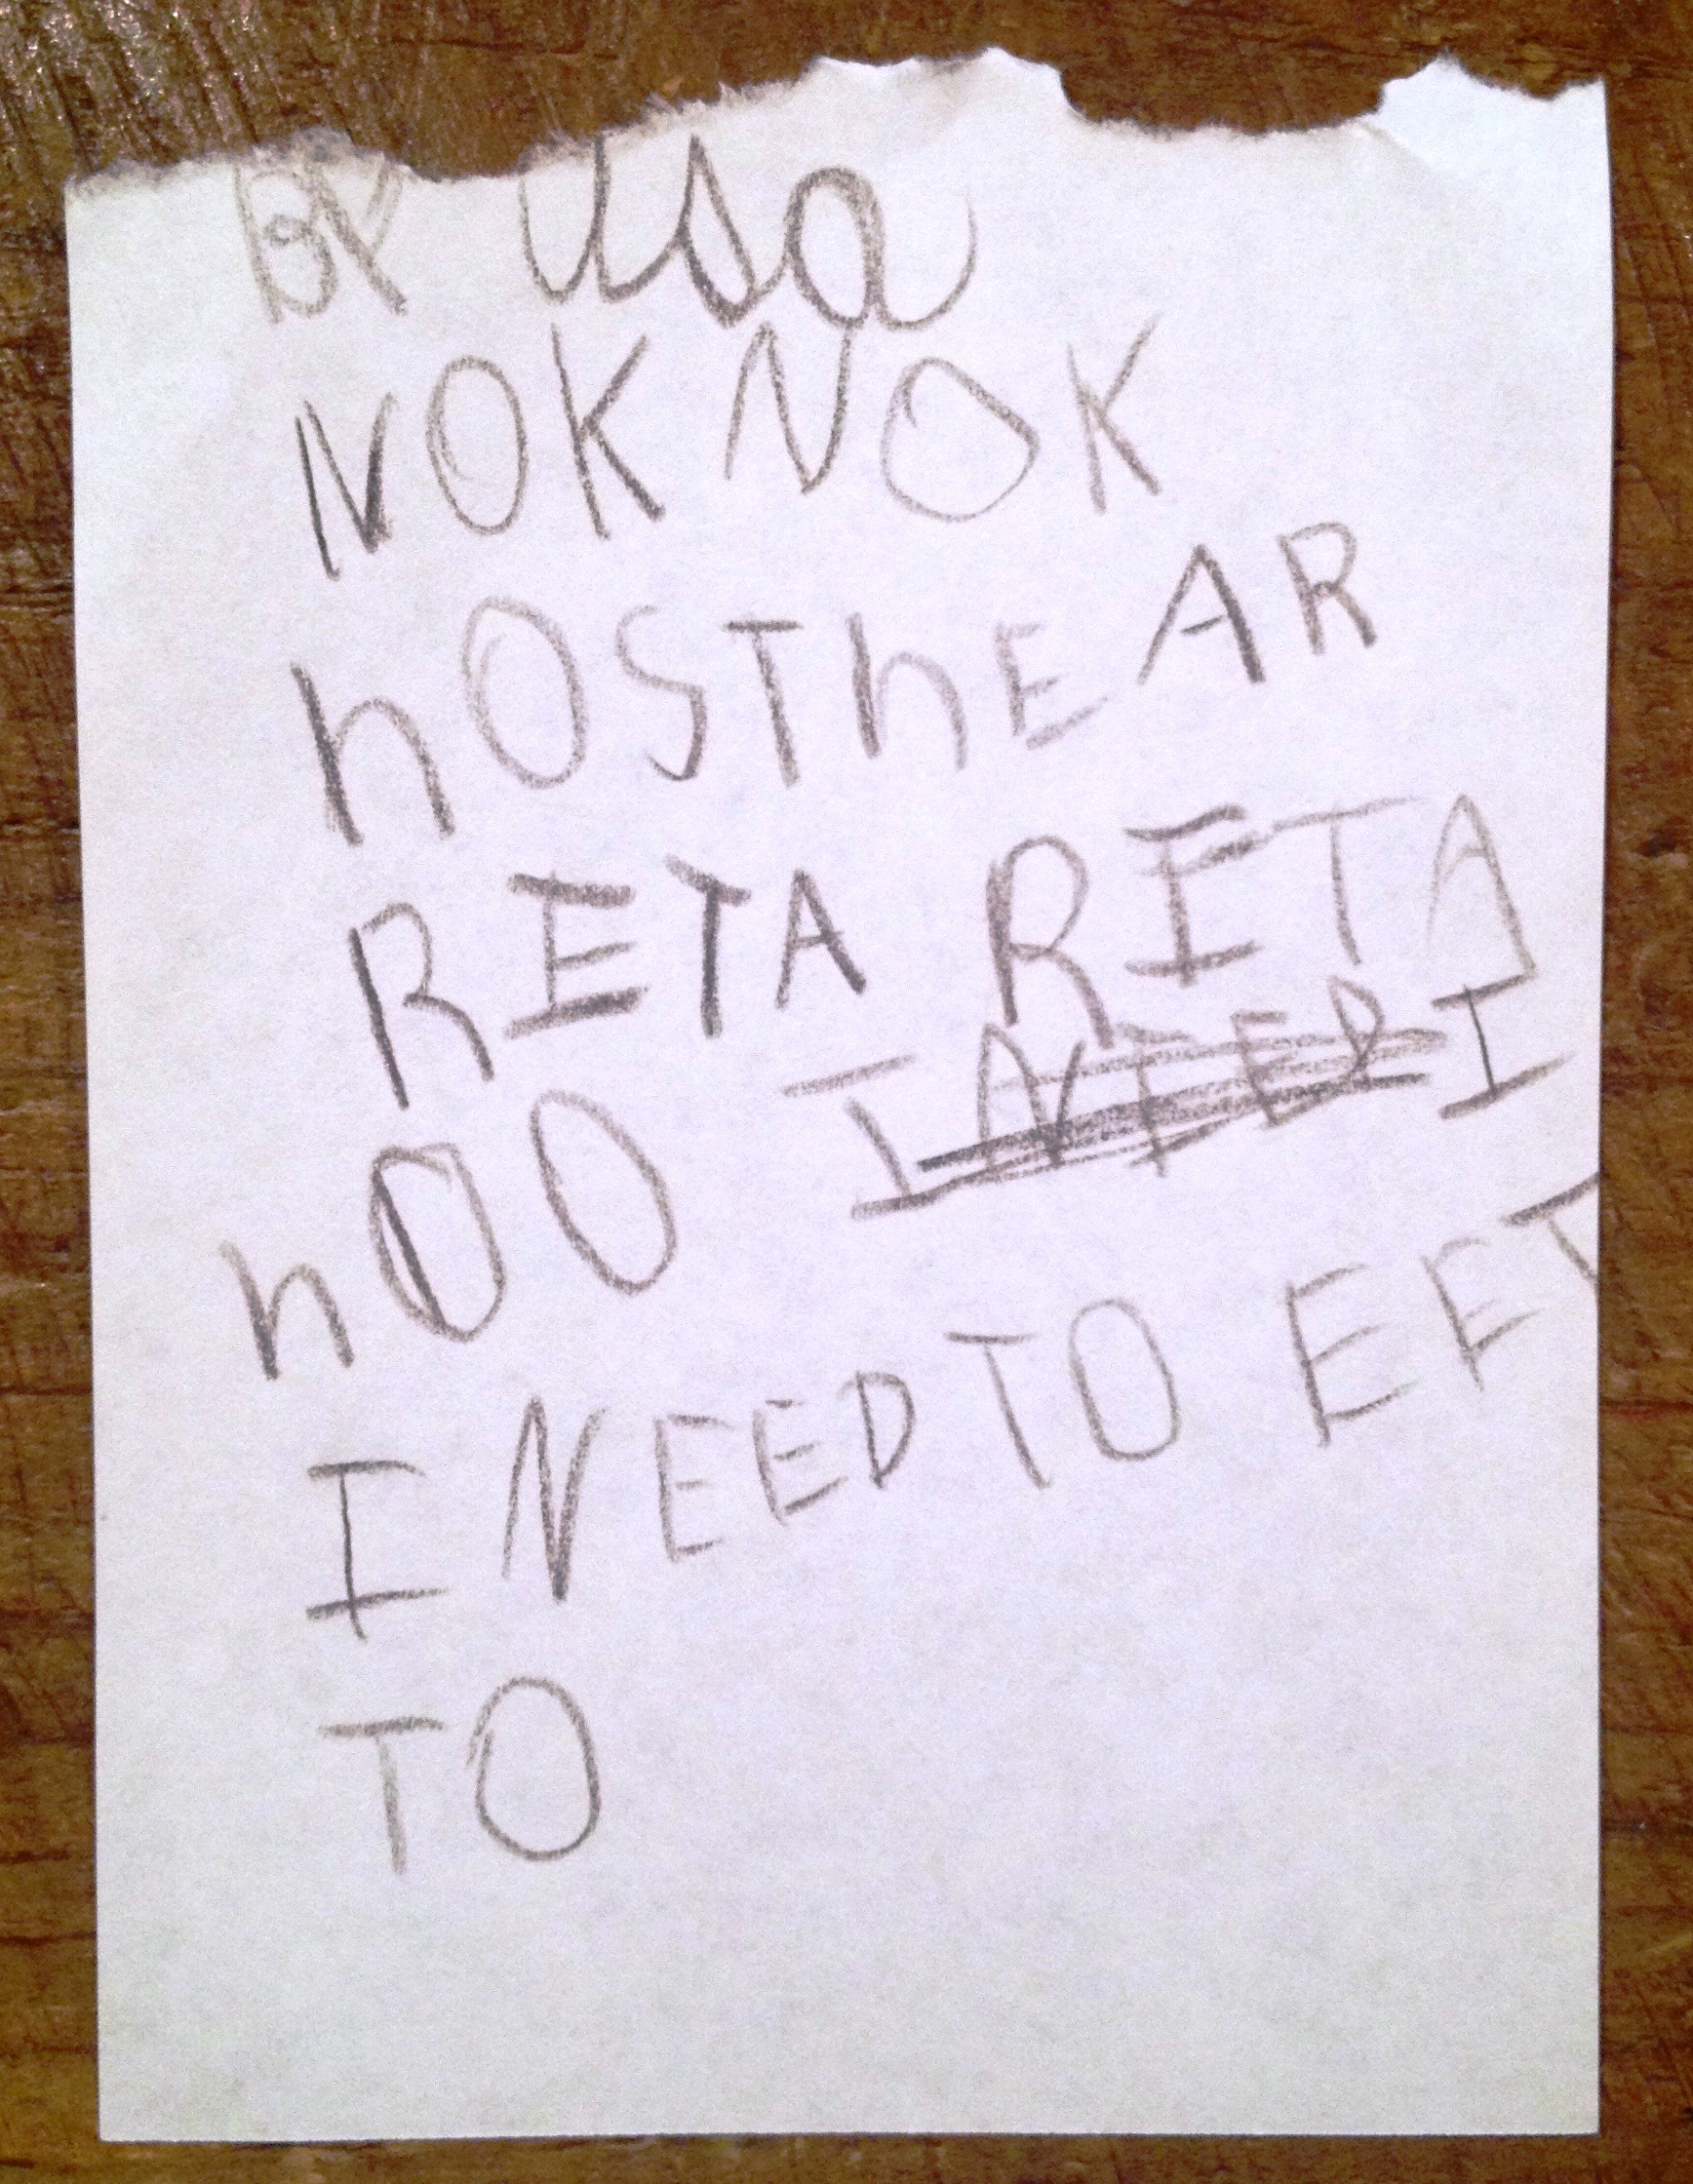 BY Lisa
NOK NOK
hOSThEAR
RETA RETA
hOO I I
I NEED TO EET
TO